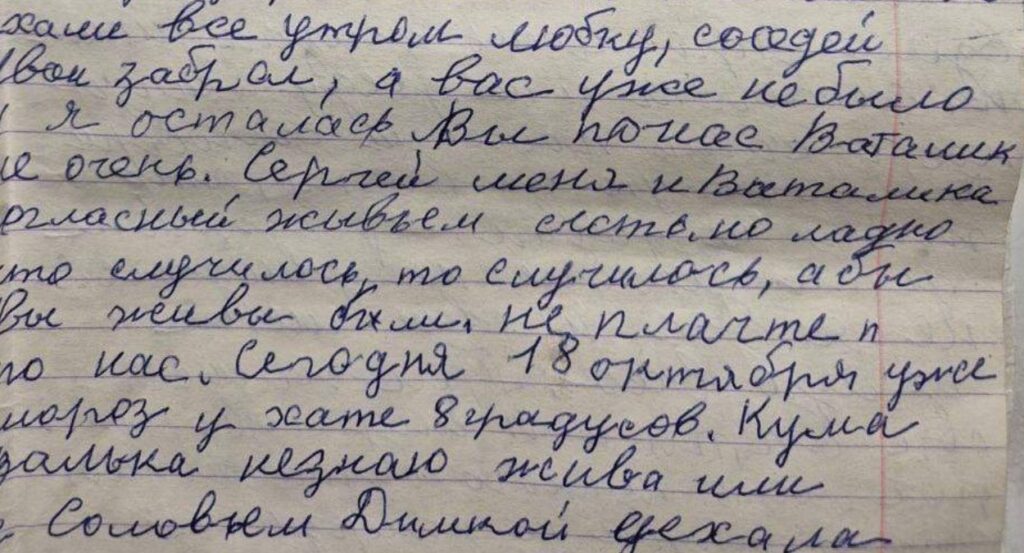 хали все утром любку, соседей
Иван забрал, а вас уже небыло
и я осталась Вы понас Ваталик
не очень. Сергей меня и Ваталика
огласный жывьем сьсть, но ладно
что случилось, то случилось, абы
Вы живы были, не плачте п
по нас. Сегодня 18 октября уже
мороз у хате 8 градусов. Кума
валька незнаю жива или
с Соловьем Димкой уехала